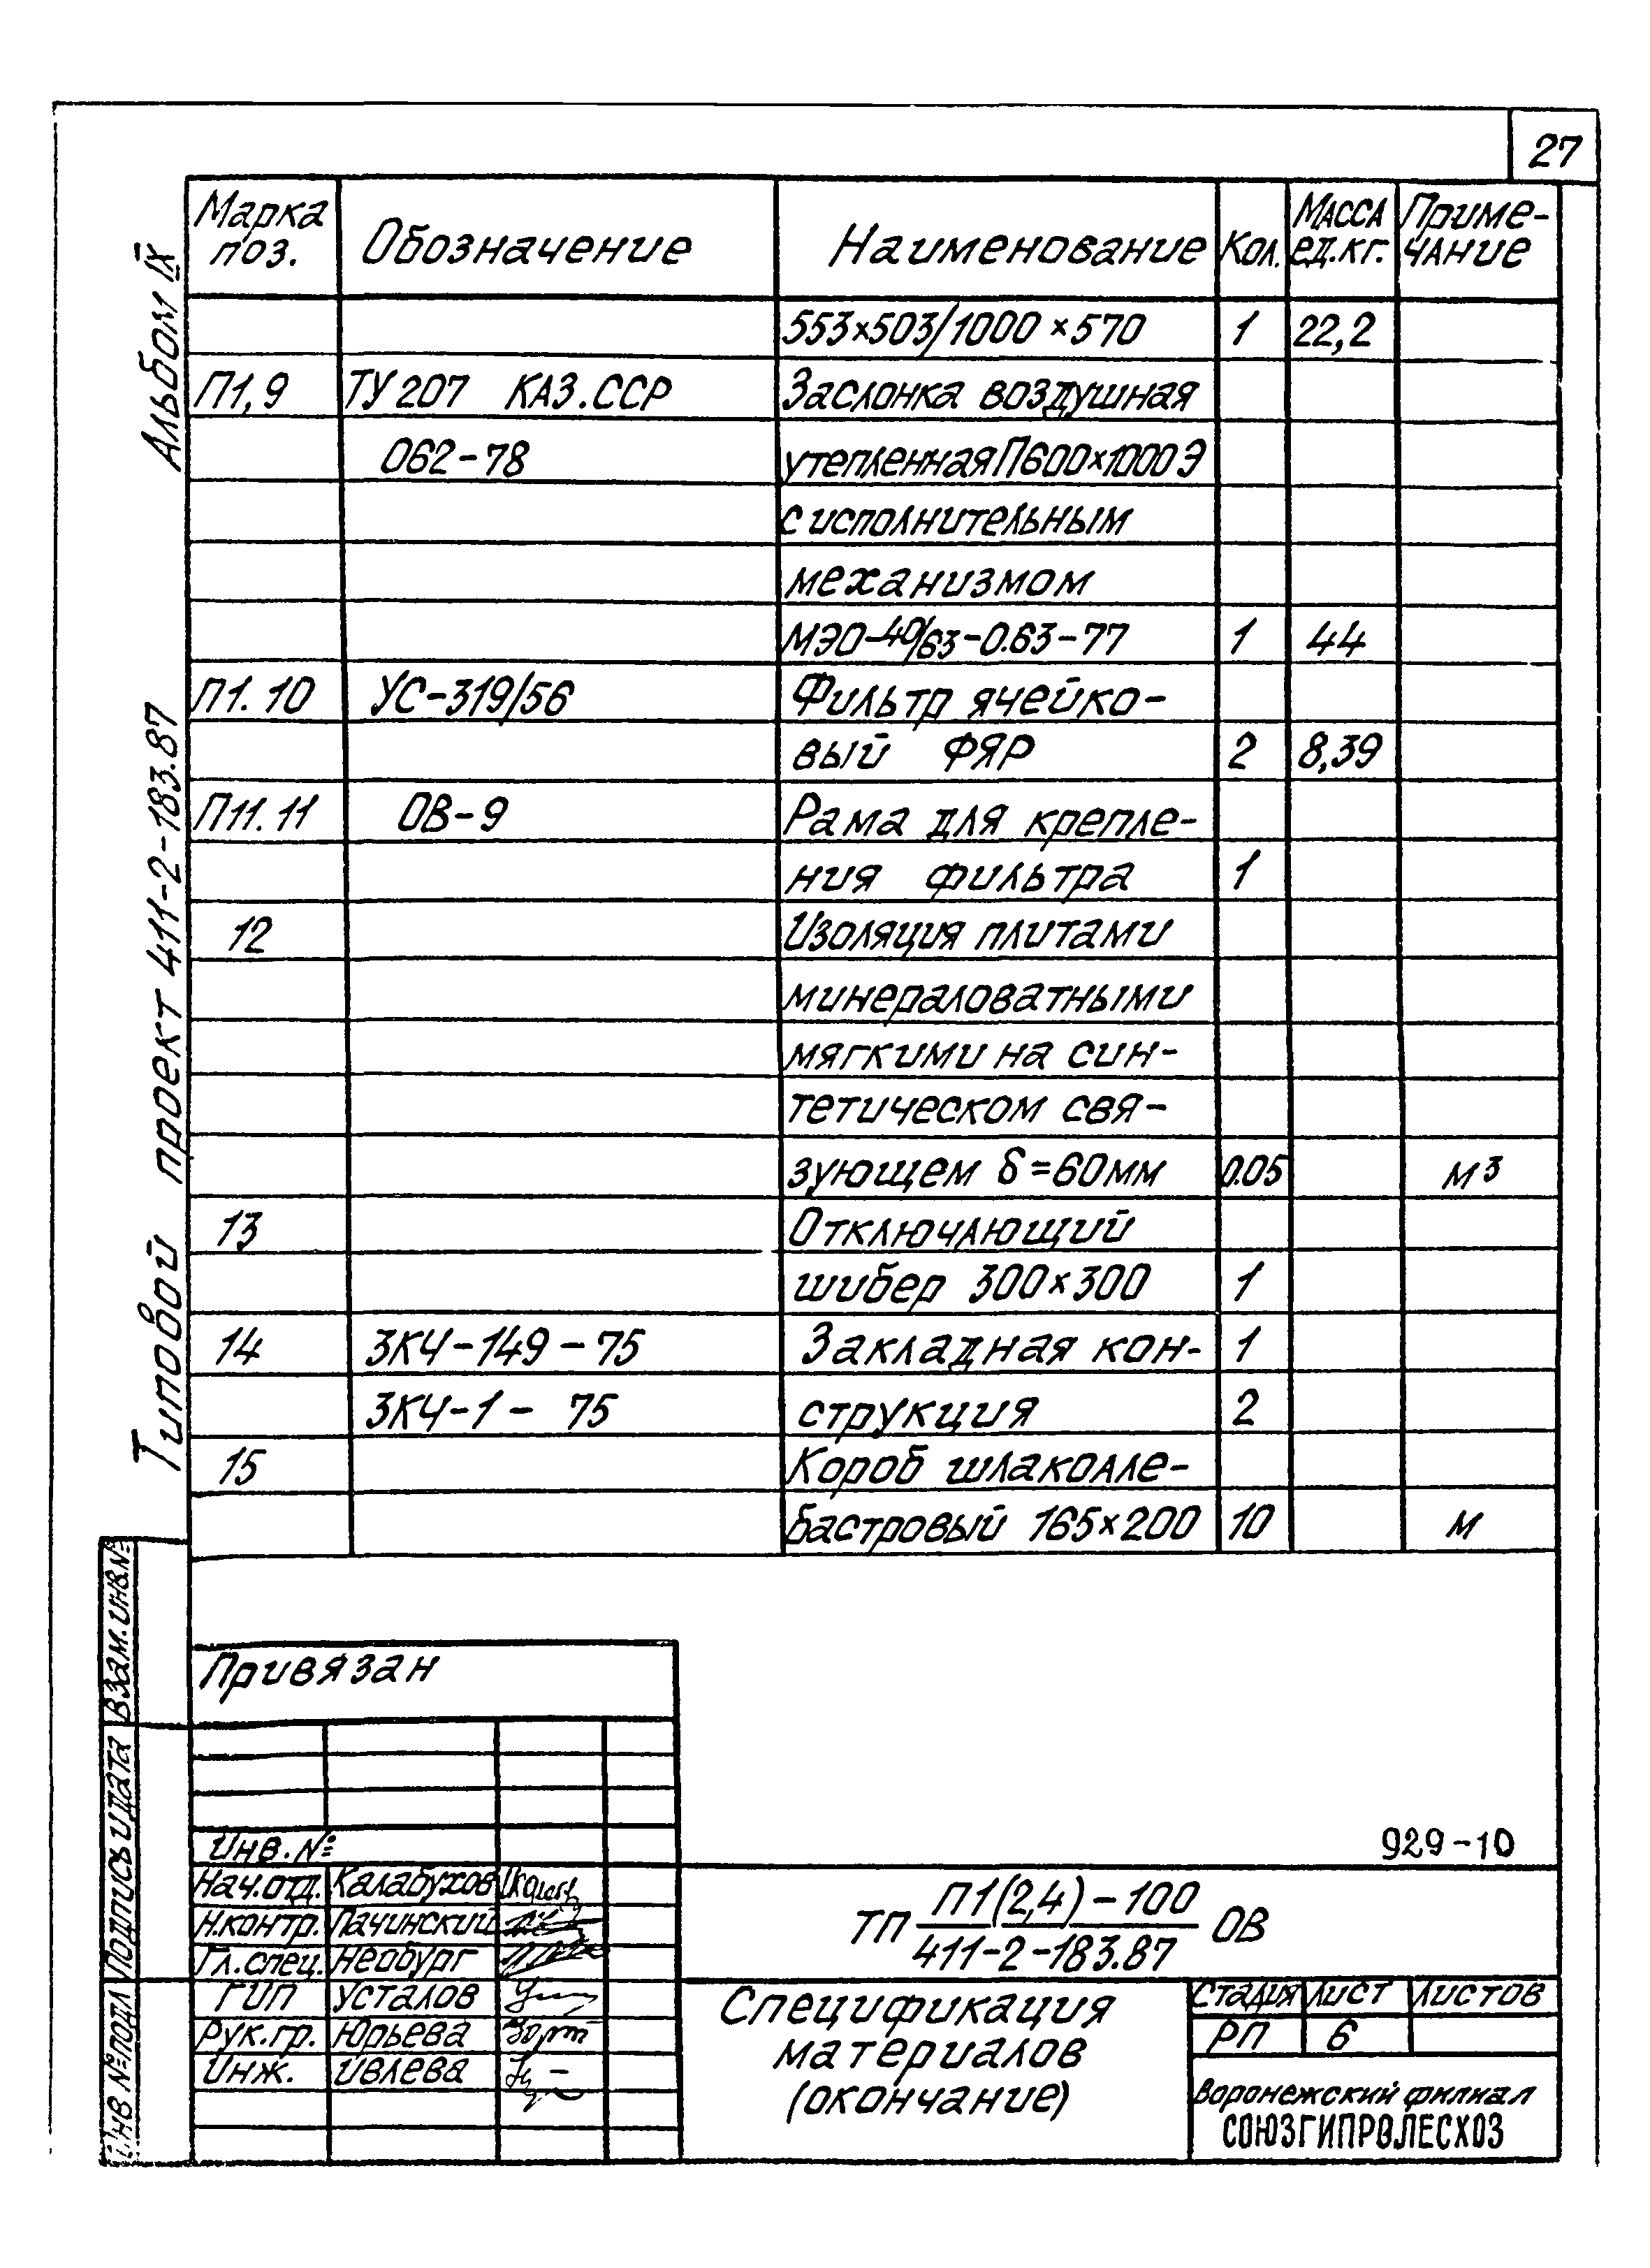 27
Альбом IX
Типовой проект 411-2-183.87
Марка поз. Обозначение Наименование Кол. Масса ед.кг. Примечание
553×503/1000×570 1 22,2
П1,9 ТУ 207 КАЗ.ССР Заслонка воздушная
062-78 утепленная П600×1000Э
с исполнительным
механизмом
МЭО-40/63-0.63-77 1 44
П1.10 УС-319/56 Фильтр ячейко-
вый ФЯР 2 8,39
П11.11 ОВ-9 Рама для крепле-
ния фильтра 1
12 Изоляция плитами
минераловатными
мягкими на син-
тетическом свя-
зующем δ=60мм 0.05 м³
13 Отключающий
шибер 300×300 1
14 ЗКЧ-149-75 Закладная кон- 1
ЗКЧ-1-75 струкция 2
15 Короб шлакоале-
бастровый 165×200 10 м
Взам.инв.№
Подпись и дата
Инв №подл
Привязан
Инв.№
Нач.отд. Калабухов
Н.контр. Пачинский
Гл.спец. Необург
ГИП Усталов
Рук.гр. Юрьева
Инж. Ивлева
929-10
ТП П1(2,4)-100 / 411-2-183.87 ОВ
Спецификация
материалов
(окончание)
Стадия Лист Листов
РП 6
Воронежский филиал
СОЮЗГИПРОЛЕСХОЗ